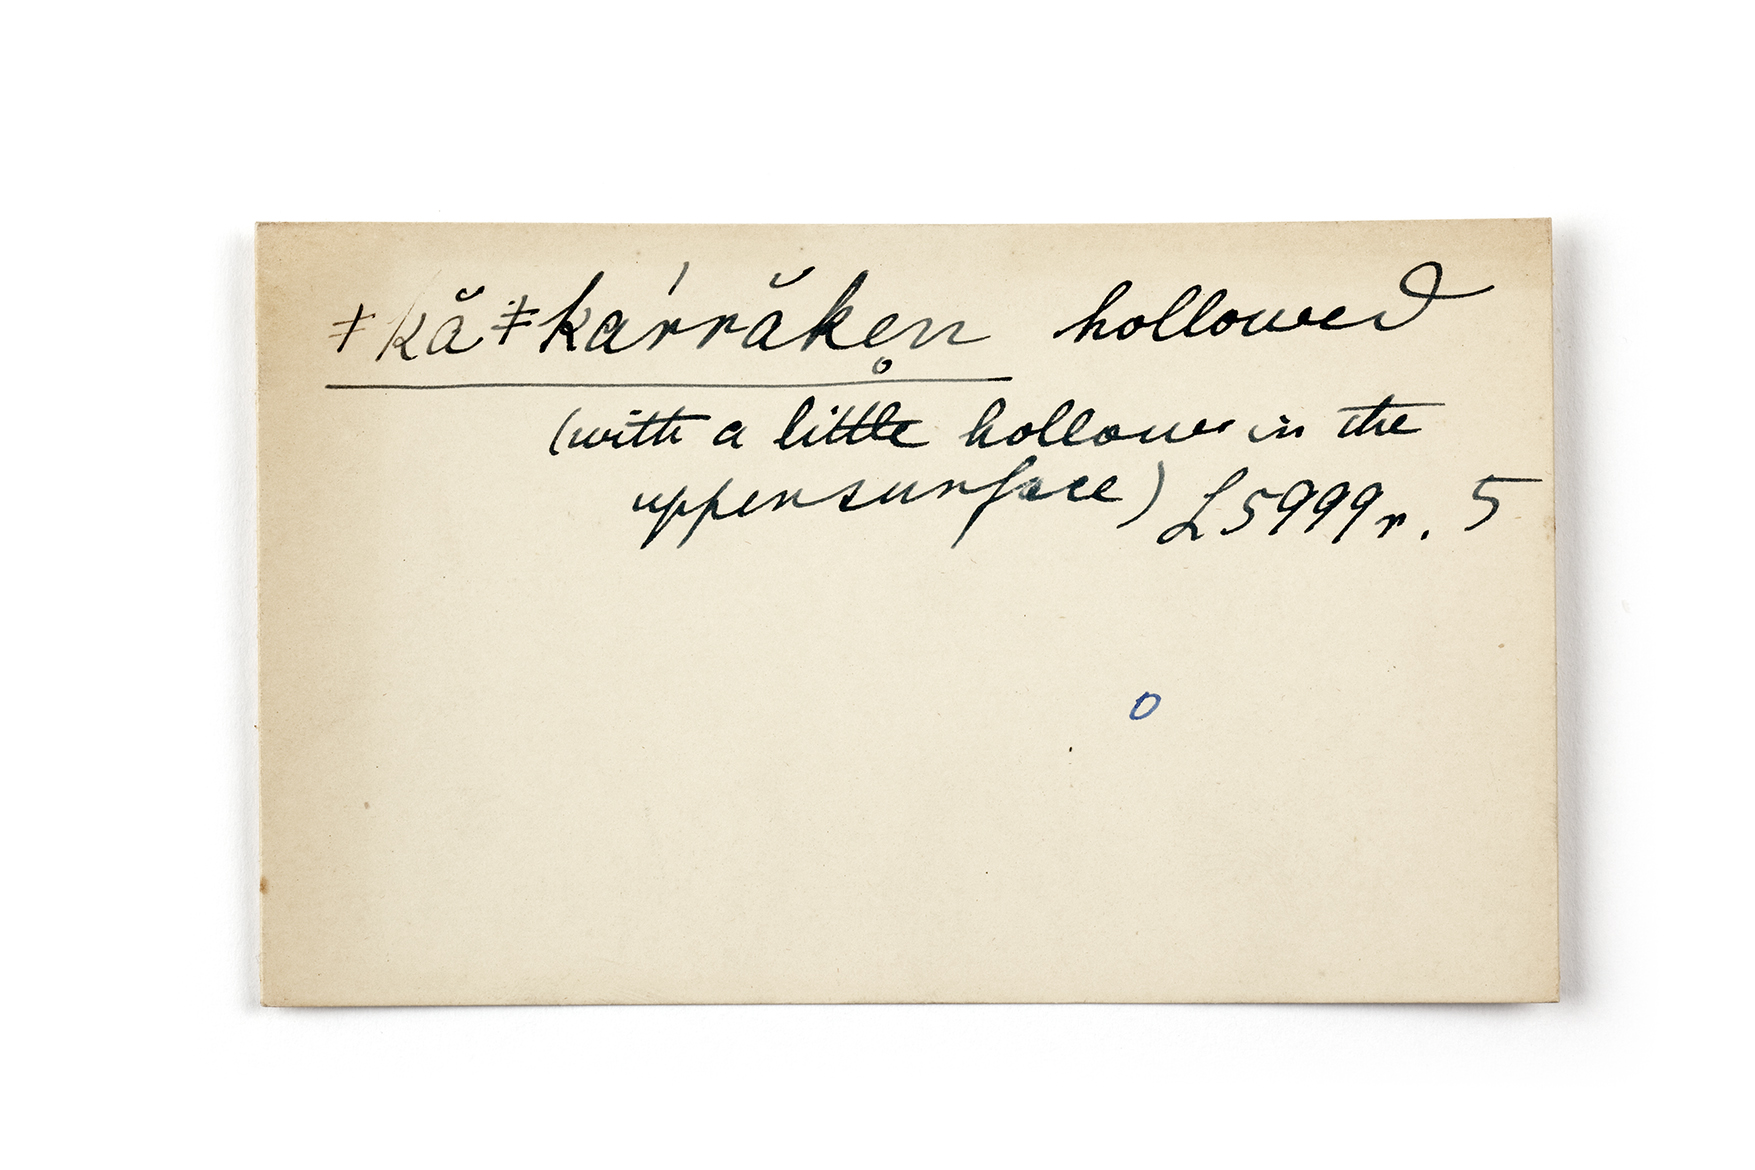 ǂkă ǂka'rrăke̥n hollowed
(with a little hollow in the
upper surface) L5999r. 5
o